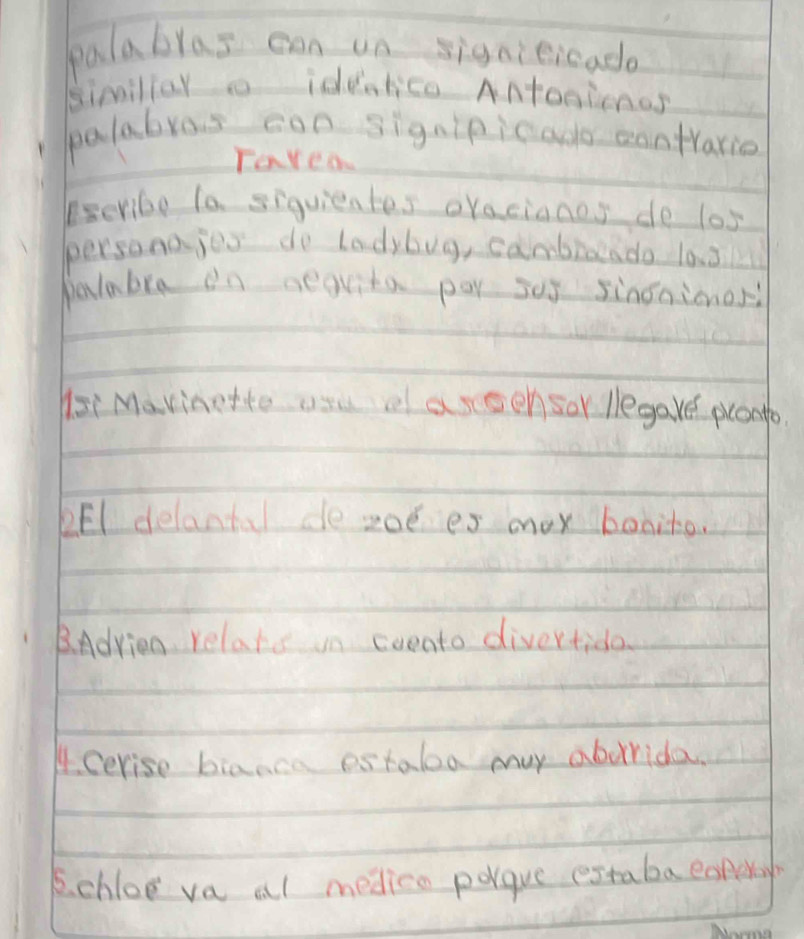 palabras con un significado
similiar o idéntico Antonimos
palabras con significado contrario
Tarea
Escribe la siguientes oraciones de los
personajes de Ladybug, cambiando las
palabra en negrita por sus sinónimos:
1.si Marinette usa el ascensor llegaré pronto.
2.El delantal de zoé es muy bonito.
3.Adrien relató un cuento divertido.
4.Cerise bianca estaba muy aburrida.
5.chloé va al medico porque estaba
Norma